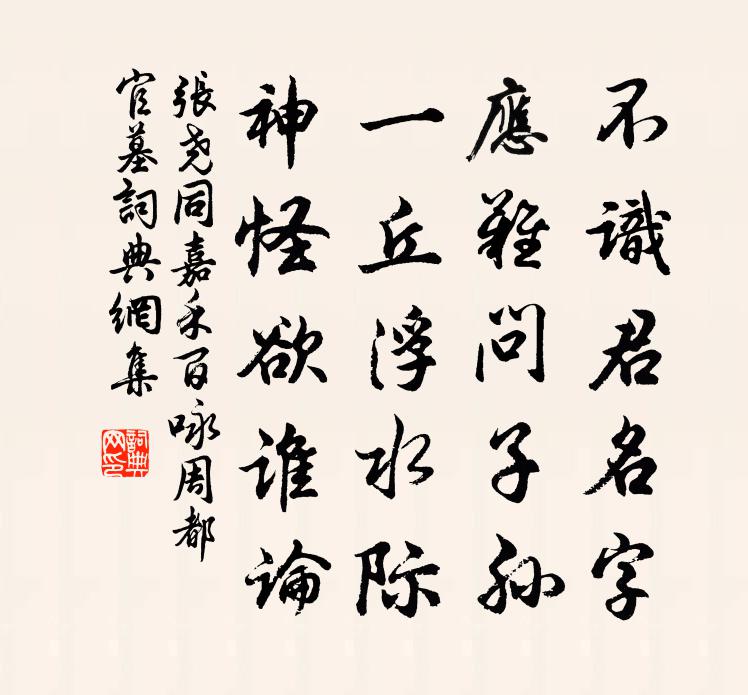 不識君名字
應難問子孫
一丘浮水际
神怪欲誰論
張尧同嘉禾百咏周都
官墓詞典網集
詞典
网印